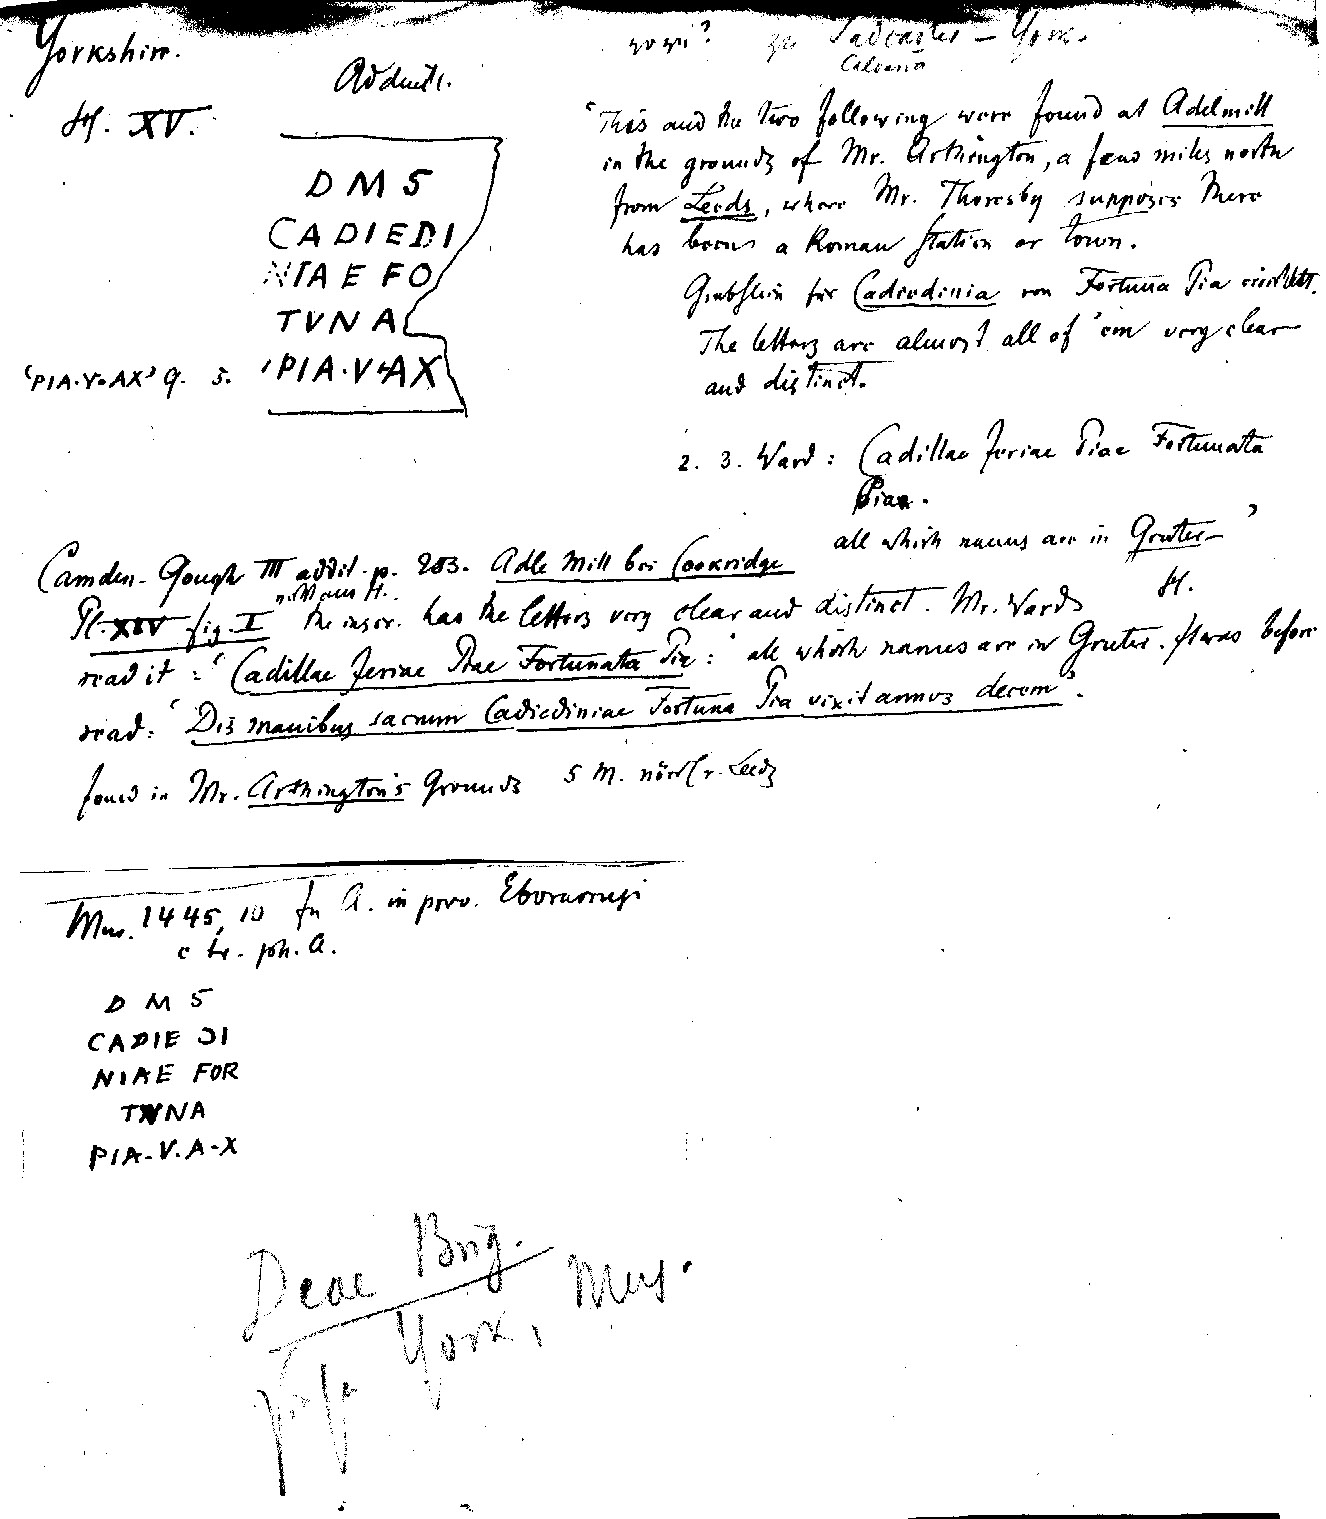 Yorkshire.
zu Tadcaster – York.
Calcaria
H. XV.
D M S
CADIEDI
NIAE FO
TVNA
PIA·V·AX
'PIA·V·AX' 9. 5.
'This and the two following were found at Adelmill
in the grounds of Mr. Arthington, a few miles north
from Leeds, where Mr. Thoresby supposes there
has been a Roman station or town.
Grabstein für Cadiedinia von Fortuna Pia errichtet.
The letters are almost all of 'em very clear
and distinct.
2. 3. Ward: Cadillae Jeriae Piae Fortunata
Piae.
all which names are in Gruter'
H.
Camden-Gough III addit. p. 283. Adle Mill bei Cookridge
Pl. XIV fig. I the inscr. has the letters very clear and distinct. Mr. Ward
read it: 'Cadillae Jeriae Piae Fortunata Pia:' all which names are in Gruter. It was before
read: 'Dis manibus sacrum Cadiediniae Fortuna Pia vixit annos decem'.
found in Mr. Arthington's Grounds 5 M. nördl. v. Leeds
Mus. 1445, 10 A. in prov.
D M S
CADIE DI
NIAE FOR
TVNA
PIA-V.A-X
Deae Brig.
York, Mus.